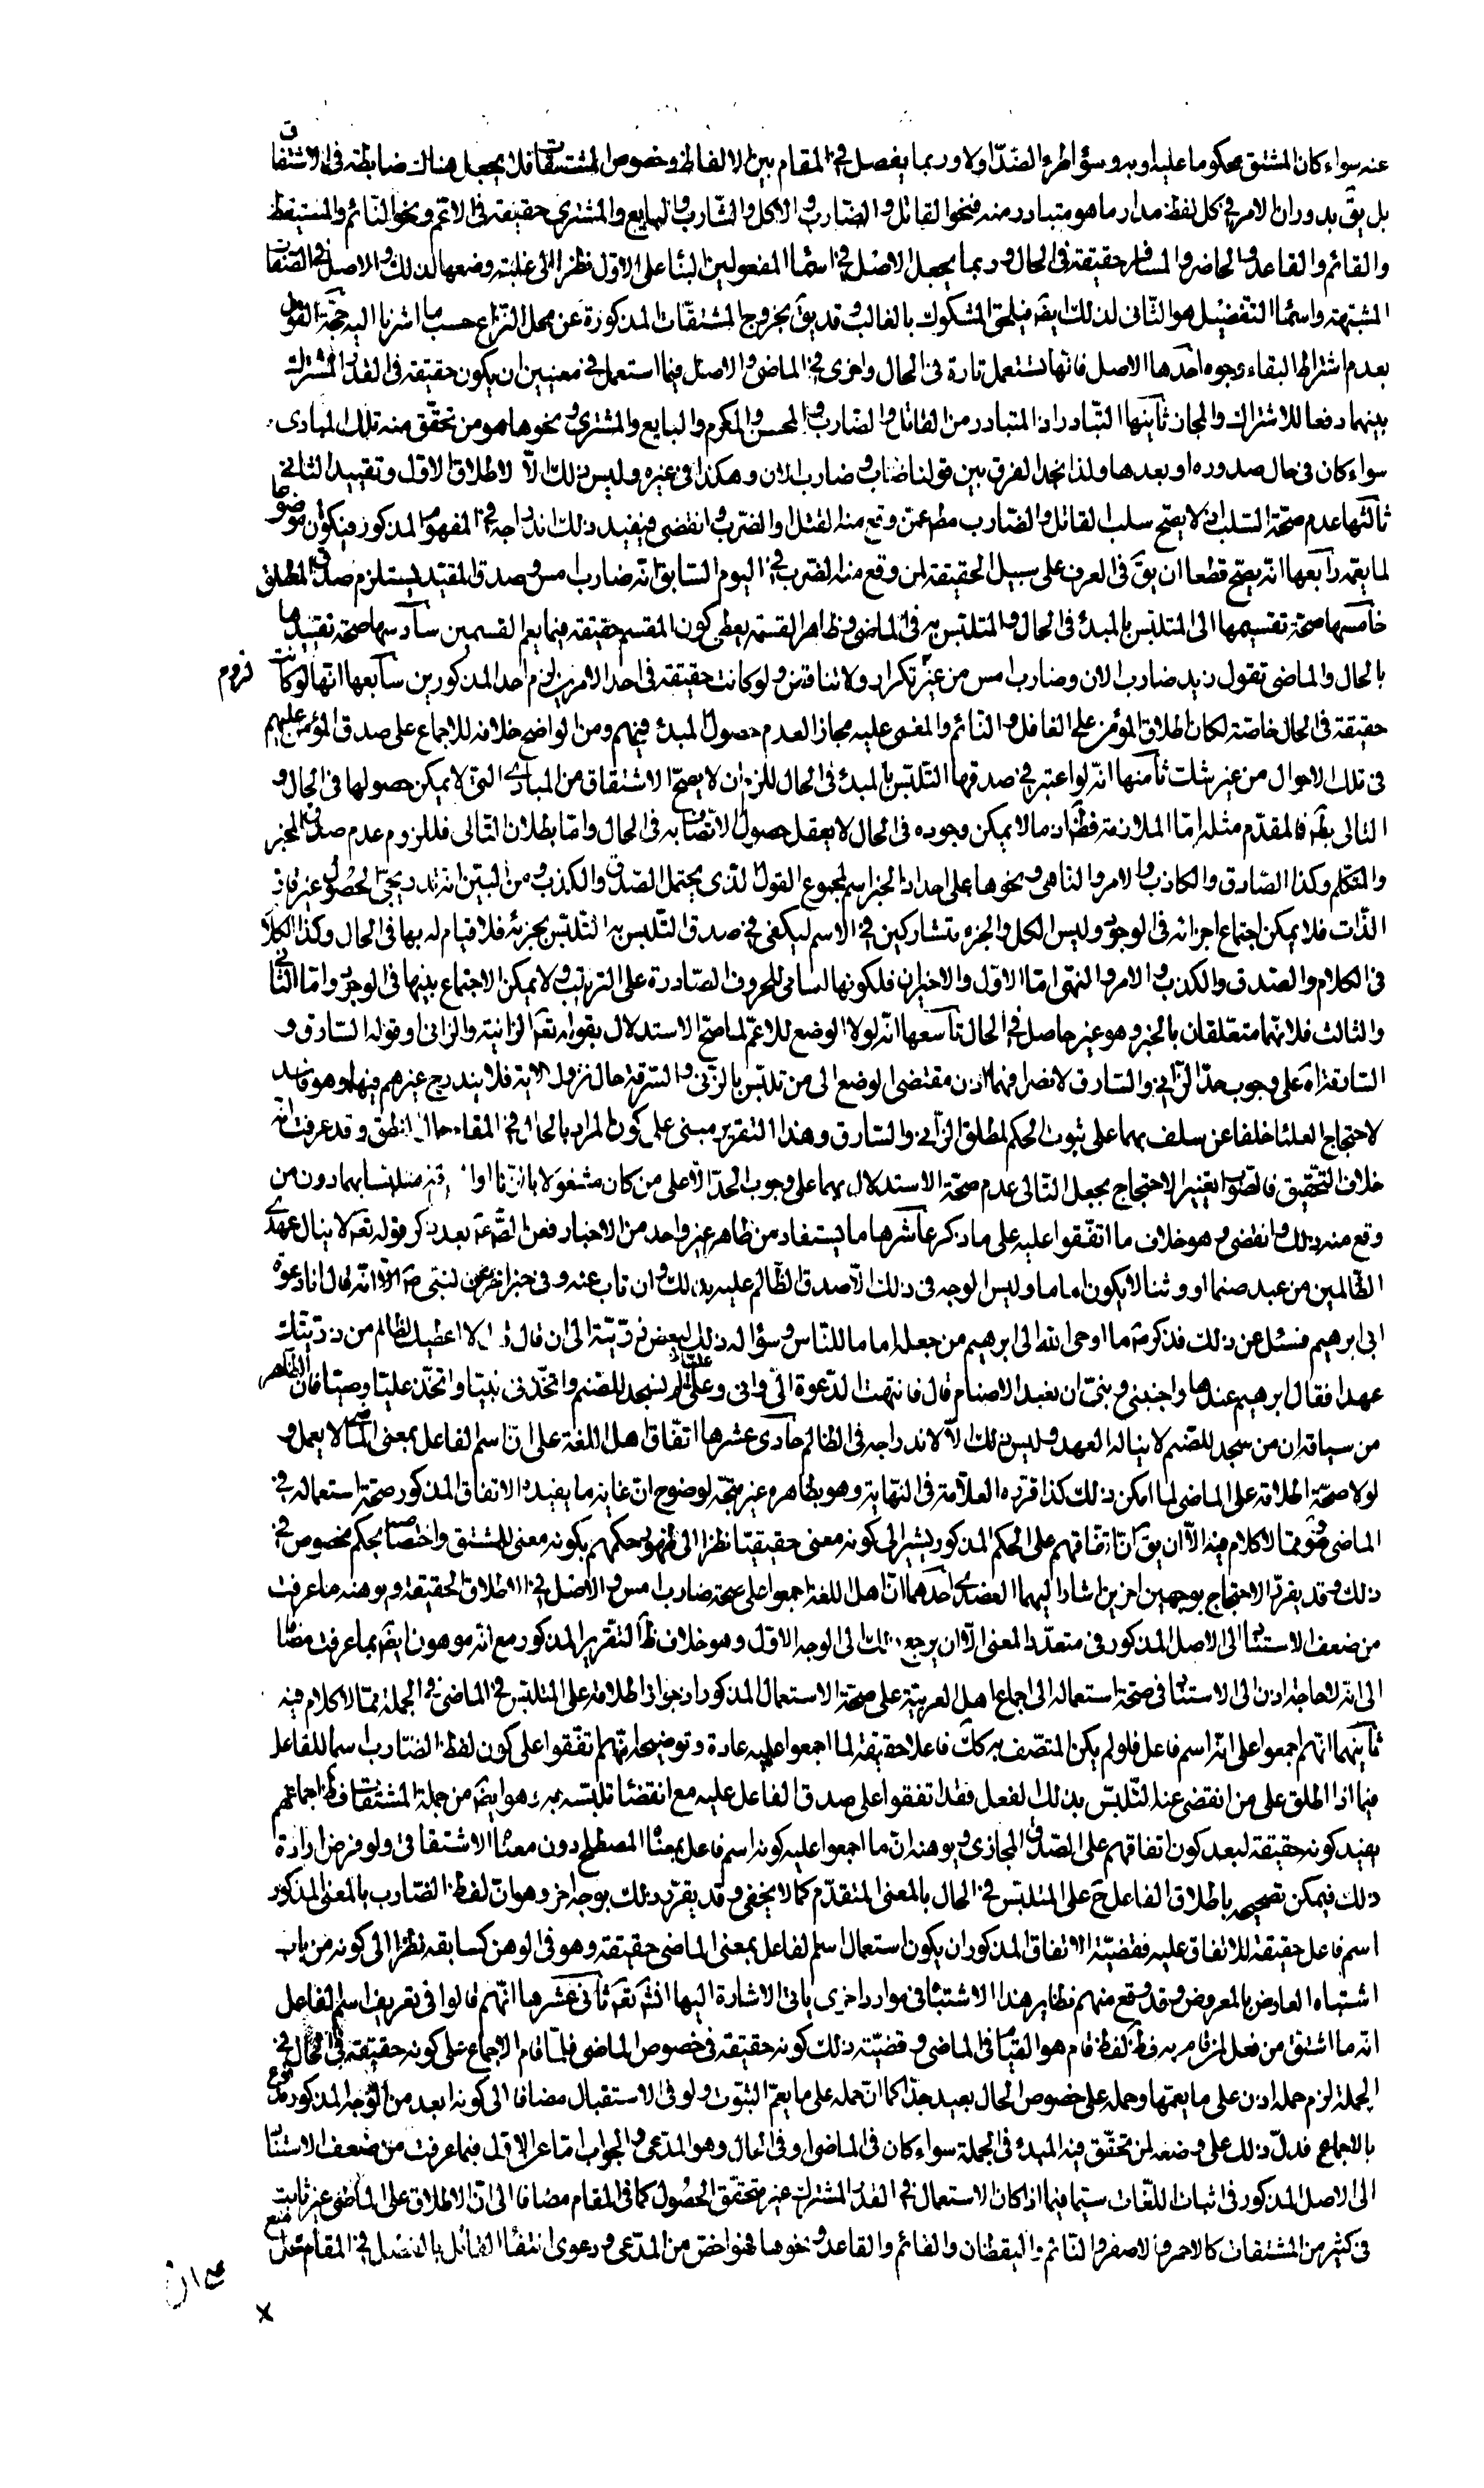 عنه سواء كان المشتق محكوما عليه او به وسواء طرء الضد او لا وربما يفصل في المقام بين الالفاظ وخصوص المشتقات فلا يجعل هناك ضابطة في الاشتقاق
بل يق بدوران الامر في كل لفظ مدار ما هو متبادر منه فنحو القاتل والضارب والاكل والشارب والبايع والمشتري حقيقة في الاعم ونحو النائم والمستيقظ
والقائم والقاعد والحاضر والمسافر حقيقة في الحال وربما يجعل الاصل في اسماء المفعولين البناء على الاول نظرا الى غلبة وضعها لذلك والاصل في الصفات
المشبهة واسماء التفضيل هو الثاني لذلك ايضا فيلحق المشكوك بالغالب وقد يق بخروج المشتقات المذكورة عن محل النزاع حسب ما اشرنا اليه حجة القول
بعدم اشتراط البقاء وجوه احدها الاصل فانها تستعمل تارة في الحال واخرى في الماضي والاصل فيما استعمل في معنيين ان يكون حقيقة في القدر المشترك
بينهما دفعا للاشتراك والمجاز ثانيها التبادر اذ المتبادر من القاتل والضارب والمحسن والمكرم والبايع والمشتري ونحوها هو من تحقق منه تلك المبادي
سواء كان في حال صدوره او بعدها ولذا نجد الفرق بين قولنا ضارب وضارب الان وهكذا في غيره وليس ذلك الا لاطلاق الاول وتقييد الثاني
ثالثها عدم صحة السلب اذ لا يصح سلب القاتل والضارب مط عمن وقع منه القتل والضرب وانقضى فيفيد ذلك اندراجه في المفهوم المذكور فيكون موضوعا
لما يعمه رابعها انه يصح قطعا ان يق في العرف على سبيل الحقيقة لمن وقع منه الضرب في اليوم السابق انه ضارب امس وصدق المقيد يستلزم صدق المطلق
خامسها صحة تقسيمها الى المتلبس بالمبدء في الحال والمتلبس به في الماضي وظاهر القسمة يعطي كون المقسم حقيقة فيما يعم القسمين سادسها صحة تقييدها
بالحال والماضي تقول زيد ضارب الان وضارب امس من غير تكرار ولا تناقض ولو كانت حقيقة في احد الامرين لزم احد المذكورين سابعها انها لو كانت
لزوم
حقيقة في الحال خاصة لكان اطلاق المؤمن على الغافل والنائم والمغمى عليه مجازا لعدم حصول المبدء فيهم ومن الواضح خلافه للاجماع على صدق المؤمن عليهم
في تلك الاحوال من غير شك ثامنها انه لو اعتبر في صدقها التلبس بالمبدء في الحال للزم ان لا يصح الاشتقاق من المبادي التي لا يمكن حصولها في الحال و
التالي بط فالمقدم مثله اما الملازمة فظ اذ ما لا يمكن وجوده في الحال لا يعقل حصول الاتصاف به في الحال واما بطلان التالي فللزوم عدم صدق المخبر
والمتكلم وكذا الصادق والكاذب والامر والناهي ونحوها على احد اذ الخبر اسم لمجموع القول الذي يحتمل الصدق والكذب ومن البين انه تدريجي الحصول غير قار
الذات فلا يمكن اجتماع اجزائه في الوجود وليس الكل والجزء متشاركين في الاسم ليكفي في صدق التلبس به التلبس بجزئه فلا قيام له بها في الحال وكذا الكلام
في الكلام والصدق والكذب والامر والنهي اما الاول والاخيران فلكونها اسامي للحروف الصادرة على الترتيب ولا يمكن الاجتماع بينها في الوجود واما الثاني
والثالث فلانهما متعلقان بالخبر وهو غير حاصل في الحال تاسعها انه لولا الوضع للاعم لما صح الاستدلال بقوله تعم الزانية والزاني وقوله السارق و
السارقة اه على وجوب حد الزاني والسارق لانصرافهما اذن بمقتضى الوضع الى من تلبس بالزنى والسرقة حال نزول الاية فلا يندرج غيرهم فيها وهو فاسد
لاحتجاج العلماء خلفا عن سلف بهما على ثبوت الحكم لمطلق الزاني والسارق وهذا التقرير مبني على كون المراد بالحال في المقام حال النطق وقد عرفت انه
خلاف التحقيق فالصواب تغيير الاحتجاج بجعل التالي عدم صحة الاستدلال بهما على وجوب الحد الا على من كان مشغولا بالزنا او السرقة متلبسا بهما دون من
وقع منه ذلك وانقضى وهو خلاف ما اتفقوا عليه على ما ذكر عاشرها ما يستفاد من ظاهر غير واحد من الاخبار فعن الصم بعد ذكر قوله تعم لا ينال عهدي
الظالمين من عبد صنما او وثنا لا يكون اماما وليس الوجه في ذلك الا صدق الظالم عليه بذلك وان تاب عنه وفي خبر اخر عن النبي ص انه قال انا دعوة
ابي ابرهيم فسئل عن ذلك فذكر ص ما اوحى الله الى ابرهيم من جعله اماما للناس وسؤاله ذلك لبعض ذريته الى ان قال لا اعطيك لظالم من ذريتك
عهدا فقال ابرهيم عندها واجنبني وبني ان نعبد الاصنام قال فانتهت الدعوة الي والى علي لم نسجد للصنم واتخذني نبيا واتخذ عليا وصيا فان الظاهر
من سياقه ان من سجد للصنم لا يناله العهد وليس ذلك الا لاندراجه في الظالم حادي عشرها اتفاق اهل اللغة على ان اسم الفاعل بمعنى الماضي لا يعمل و
لولا صحة اطلاقه على الماضي لما امكن ذلك كذا قرره العلامة في النهاية وهو بظاهره غير متجه لوضوح ان غاية ما يفيده الاتفاق المذكور صحة استعماله في
الماضي وهو مما لا كلام فيه الا ان يق ان اتفاقهم على الحكم المذكور يشير الى كونه معنى حقيقيا نظرا الى ظهور حكمهم بكونه معنى للمشتق واختصاصه بحكم مخصوص في
ذلك وقد يقرر الاحتجاج بوجهين اخرين اشار اليهما العضدي احدهما ان اهل اللغة اجمعوا على صحة ضارب امس والاصل في الاطلاق الحقيقة ويوهنه ما عرفت
من ضعف الاستناد الى الاصل المذكور في متعدد المعنى الا ان يرجع ذلك الى الوجه الاول وهو خلاف ظ التقرير المذكور مع انه موهون ايضا بما عرفت مضافا
الى انه لا حاجة اذن الى الاستناد في صحة استعماله الى اجماع اهل العربية على صحة الاستعمال المذكور اذ جواز اطلاقه على المتلبس في الماضي في الجملة مما لا كلام فيه
ثانيهما انهم اجمعوا على انه اسم فاعل فلو لم يكن المتصف به كك فاعلا حقيقة لما اجمعوا عليه عادة وتوضيحه انهم اتفقوا على كون لفظ الضارب اسما للفاعل
فيما اذا اطلق على من انقضى عنه التلبس بذلك الفعل فقد اتفقوا على صدق الفاعل عليه مع انقضاء تلبسه به وهو ايضا من جملة المشتقات فظ اجماعهم
يفيد كونه حقيقة لبعد كون اتفاقهم على الصدق المجازي ويوهنه ان ما اجمعوا عليه كونه اسم فاعل بمعناه المصطلح دون معناه الاشتقاقي ولو فرض ارادة
ذلك فيمكن تصحيحه باطلاق الفاعل ح على المتلبس في الحال بالمعنى المتقدم كما لا يخفى وقد يقرر ذلك بوجه اخر وهو ان لفظ الضارب بالمعنى المذكور
اسم فاعل حقيقة للاتفاق عليه فقضية الاتفاق المذكور ان يكون استعمال اسم الفاعل بمعنى الماضي حقيقة وهو في الوهن كسابقه نظرا الى كونه من باب
اشتباه العارض بالمعروض وقد وقع منهم نظاير هذا الاشتباه في موارد اخرى ياتي الاشارة اليها انش تعم ثاني عشرها انهم قالوا في تعريف اسم الفاعل
انه ما اشتق من فعل لمن قام به فظ لفظ قام هو القيام في الماضي وقضية ذلك كونه حقيقة في خصوص الماضي فلما قام الاجماع على كونه حقيقة في الحال في
الجملة لزم حمله اذن على ما يعمها وحمله على خصوص الحال بعيد جدا كما ان حمله على ما يعم الثبوت ولو في الاستقبال مضافا الى كونه ابعد من الوجه المذكور مدفوع
بالاجماع فدل ذلك على وضعه لمن تحقق فيه المبدء في الجملة سواء كان في الماضي او في الحال وهو المدعى والجواب اما عن الاول فبما عرفت من ضعف الاستناد
الى الاصل المذكور في اثبات اللغات سيما فيما اذا كان الاستعمال في القدر المشترك غير متحقق الحصول كما في المقام مضافا الى ان الاطلاق على الماضي غير ثابت
في كثير من المشتقات كالاحمر والاصفر والنائم واليقظان والقائم والقاعد ونحوها فهو اخص من المدعى ودعوى انتفاء القائل بالفصل في المقام محل منع